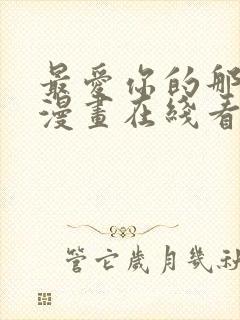 最愛你的那
漫畫在綫看
管它歲月幾